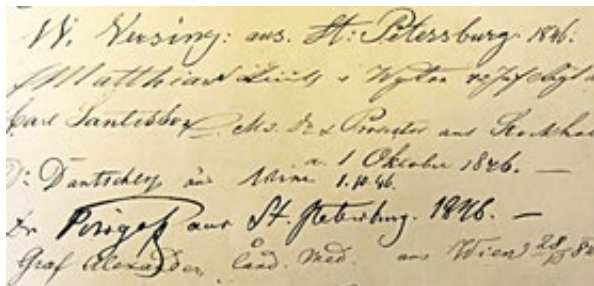 W. Versing: aus. St: Petersburg 1846.
Matthias
Carl Santesson. M. Dr & Prosector aus Stockho
Dr Dantscher aus Wien a. 1 Oktober 1846. —
1.10.46.
Dr Pirogoff aus St. Petersburg. 1846. —
Graf Alexander, Cand. Med. aus Wien